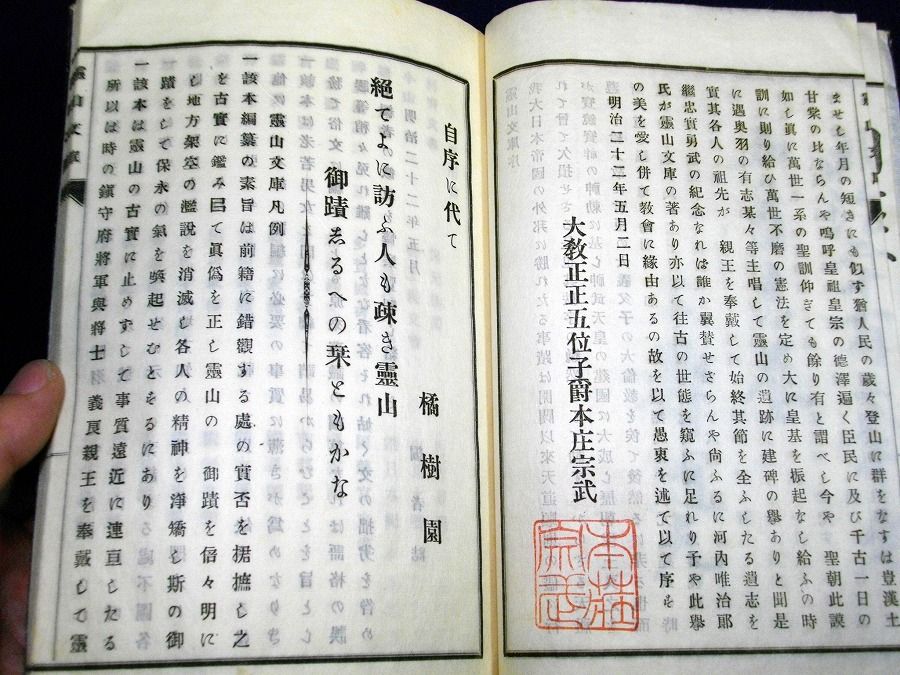 ませし年月の短きにも似す猶人民の歳々登山に群をなすは豊漢土
甘棠の比ならんや嗚呼皇祖皇宗の德澤遍く臣民に及び千古一日の
如し眞に萬世一系の聖訓仰ぎても餘り有と謂べし今や　聖朝此謨
訓に則り給ひ萬世不磨の憲法を定め大に皇基を振起なし給ふの時
に遇奥羽の有志某々等主唱して靈山の遺跡に建碑の擧ありと聞是
實其各人の祖先が　親王を奉戴して始終其節を全ふしたる遺志を
繼忠實勇武の紀念なれは誰か翼賛せさらんや尚ふるに河内唯治郎
氏が靈山文庫の著あり亦以て往古の世態を窺ふに足れり予や此擧
の美を愛し併て教會に緣由あるの故を以て愚衷を述て以て序を
明治二十二年五月二日
大敎正正五位子爵本庄宗武
本莊宗武
自序に代て
橘樹園
絕てよに訪ふ人も疎き靈山
御蹟志るへの栞ともかな
靈山文庫凡例
一該本編纂の素旨は前籍に錯觀する處の實否を捃摭し之
を古實に鑑み且て眞僞を正し靈山の　御蹟を倍々明に
し地方架空の濫說を消滅し各人の精神を淨矯し斯の御
蹟をして保永の氣を喚起せむとするにあり
一該本は靈山の古實に止めすして事質遠近に連亘したる
所以は時の鎭守府將軍與將士　義良親王を奉戴して靈